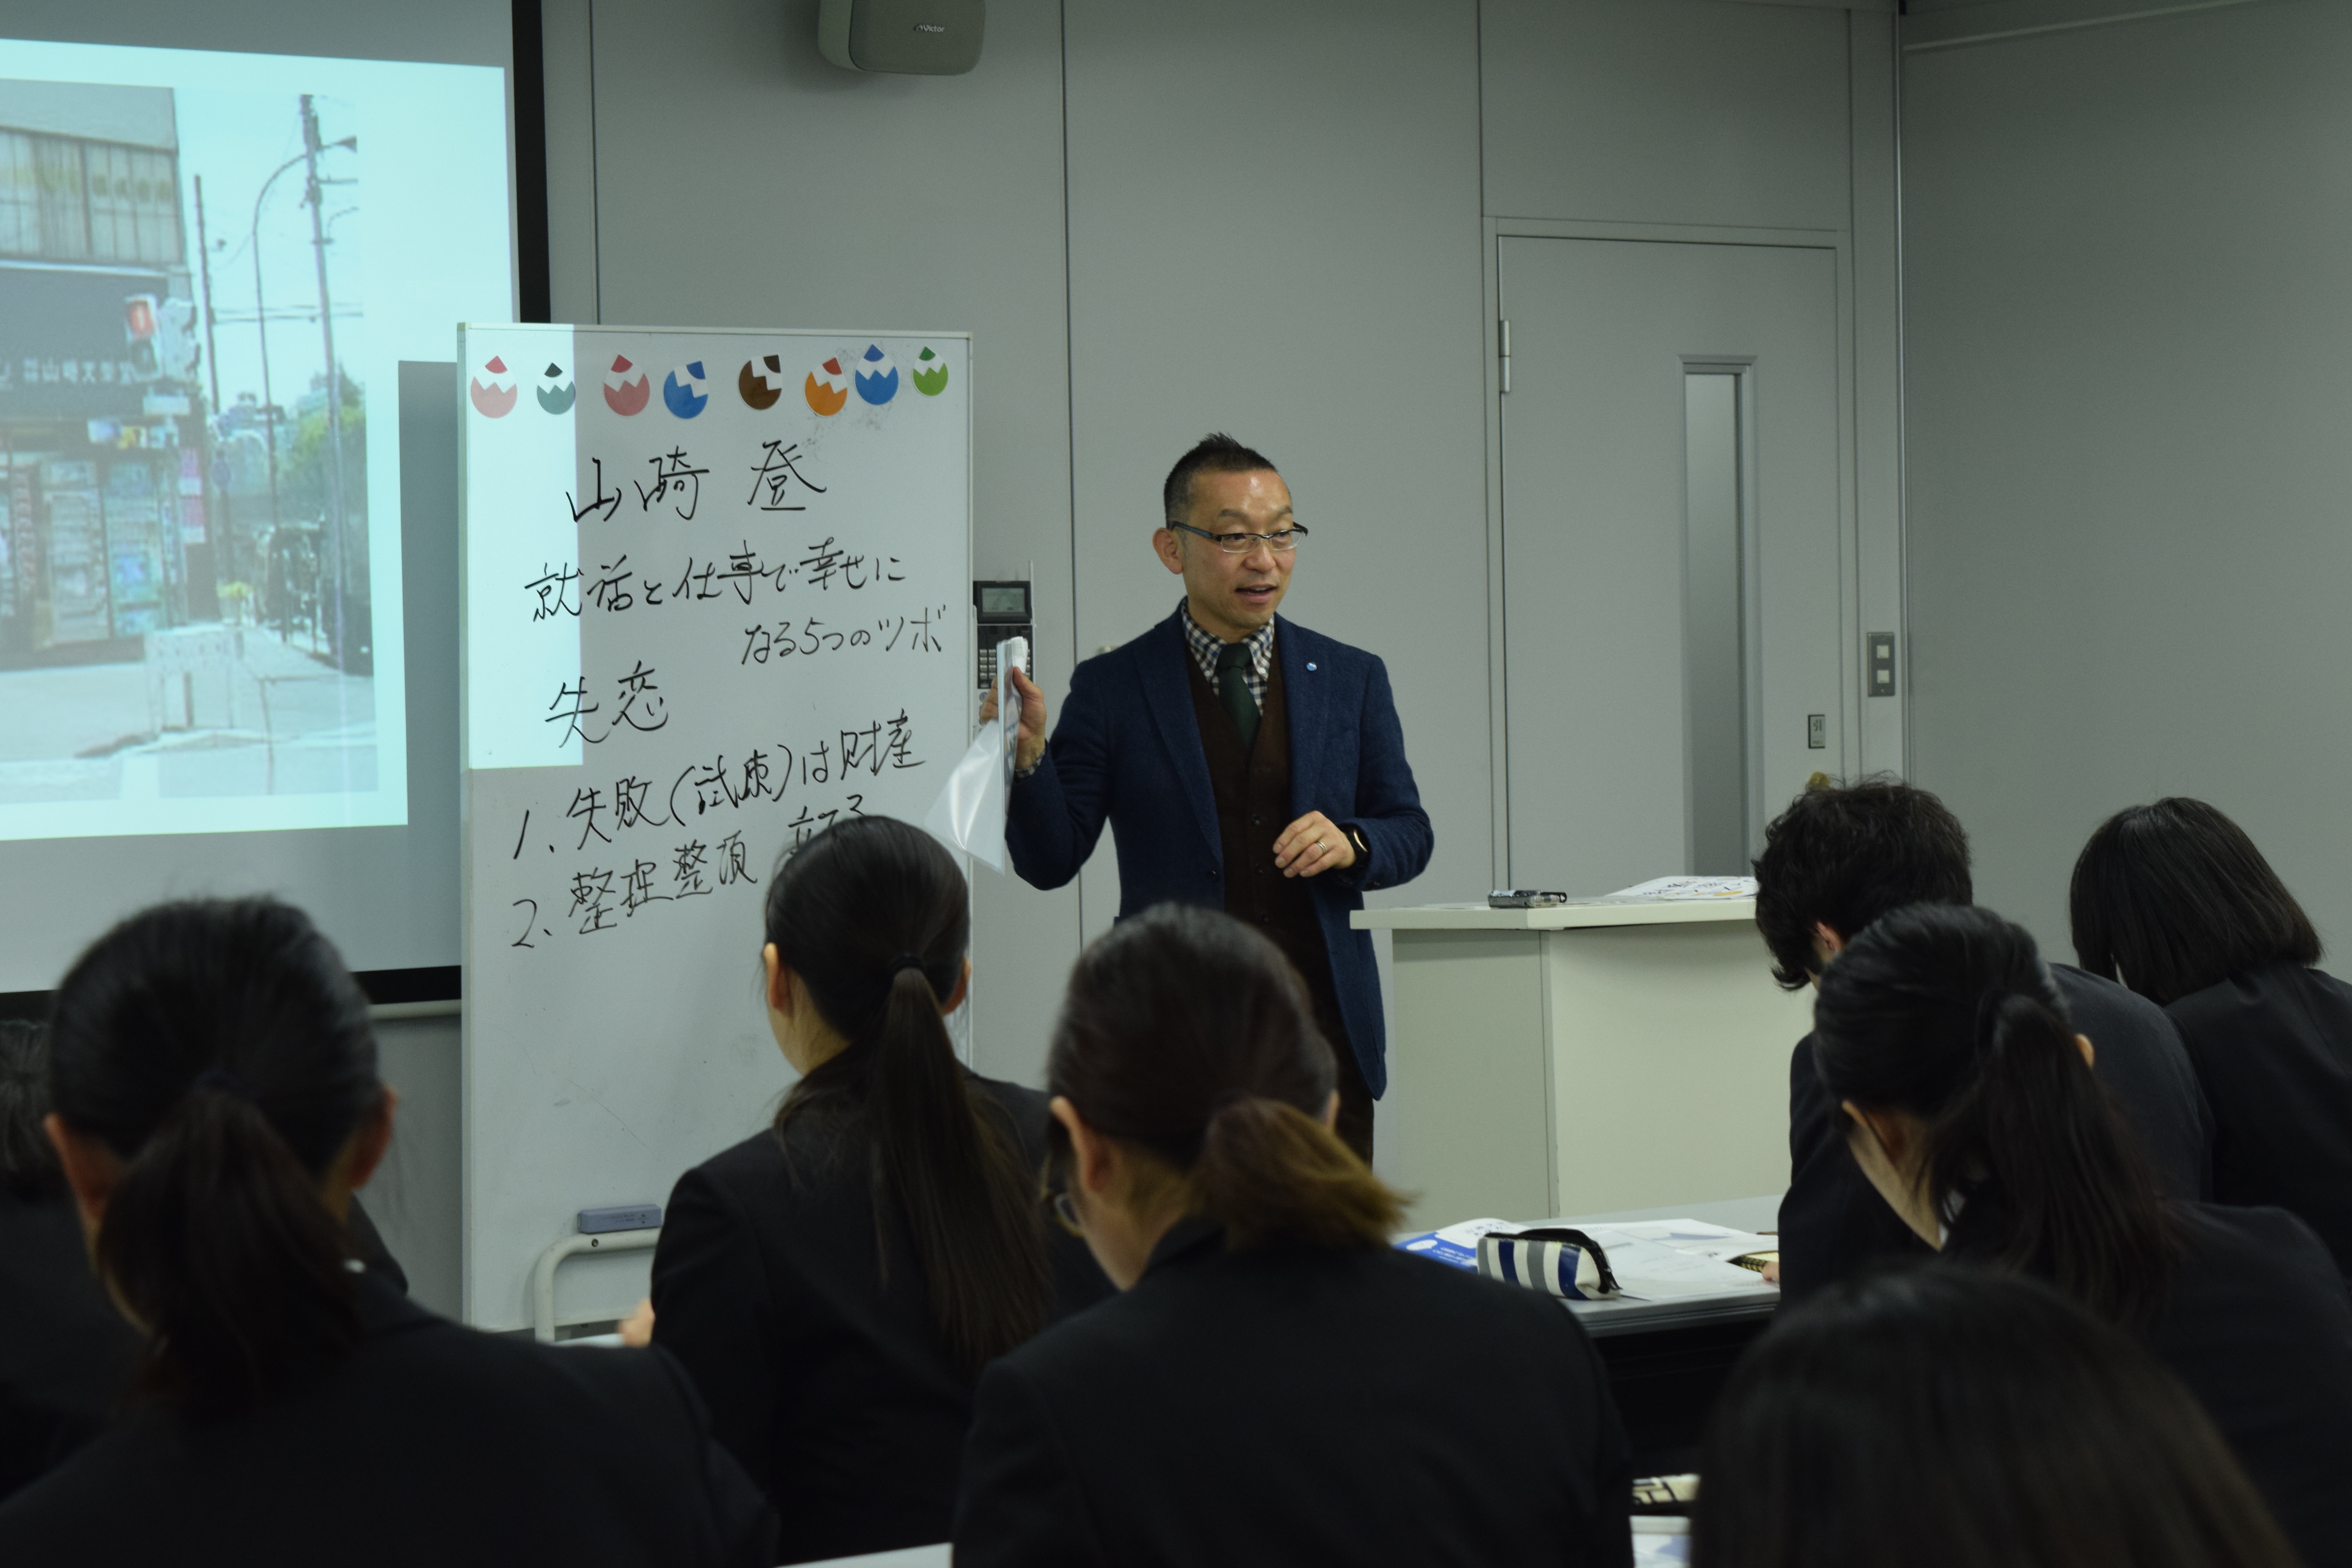 Victor
山崎 登
就活と仕事で幸せに
なる5つのツボ
失恋
1、失敗(試練)は財産
2、整理整頓 立てる
引